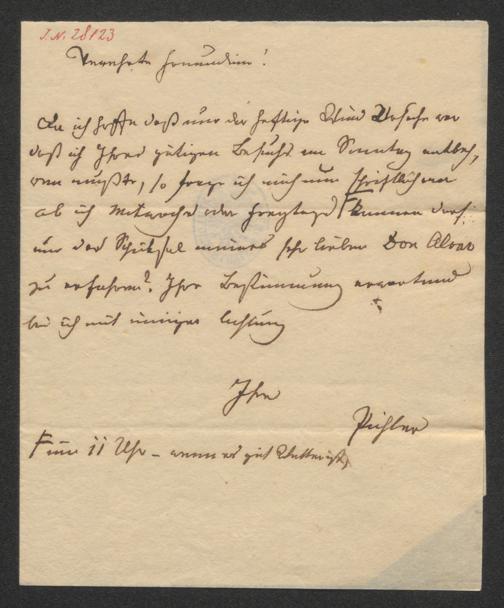 I.N. 28123
Verehrte Freundin!
Da ich hoffe daß nur der heftige Wind Ursache war
daß ich Ihres gütigen Besuchs am Sonntag entbeh,
ren mußte, so frage ich mich nun schriftlich an
ob ich Mittwochs oder Freytags kommen darf
um das Schicksal meines sehr lieben Don Alvar
zu erfahren? Ihre Bestimmung erwartend
bin ich mit inniger Achtung
Ihre
Pichler
um 11 Uhr – wenn es gut Wetter ist,